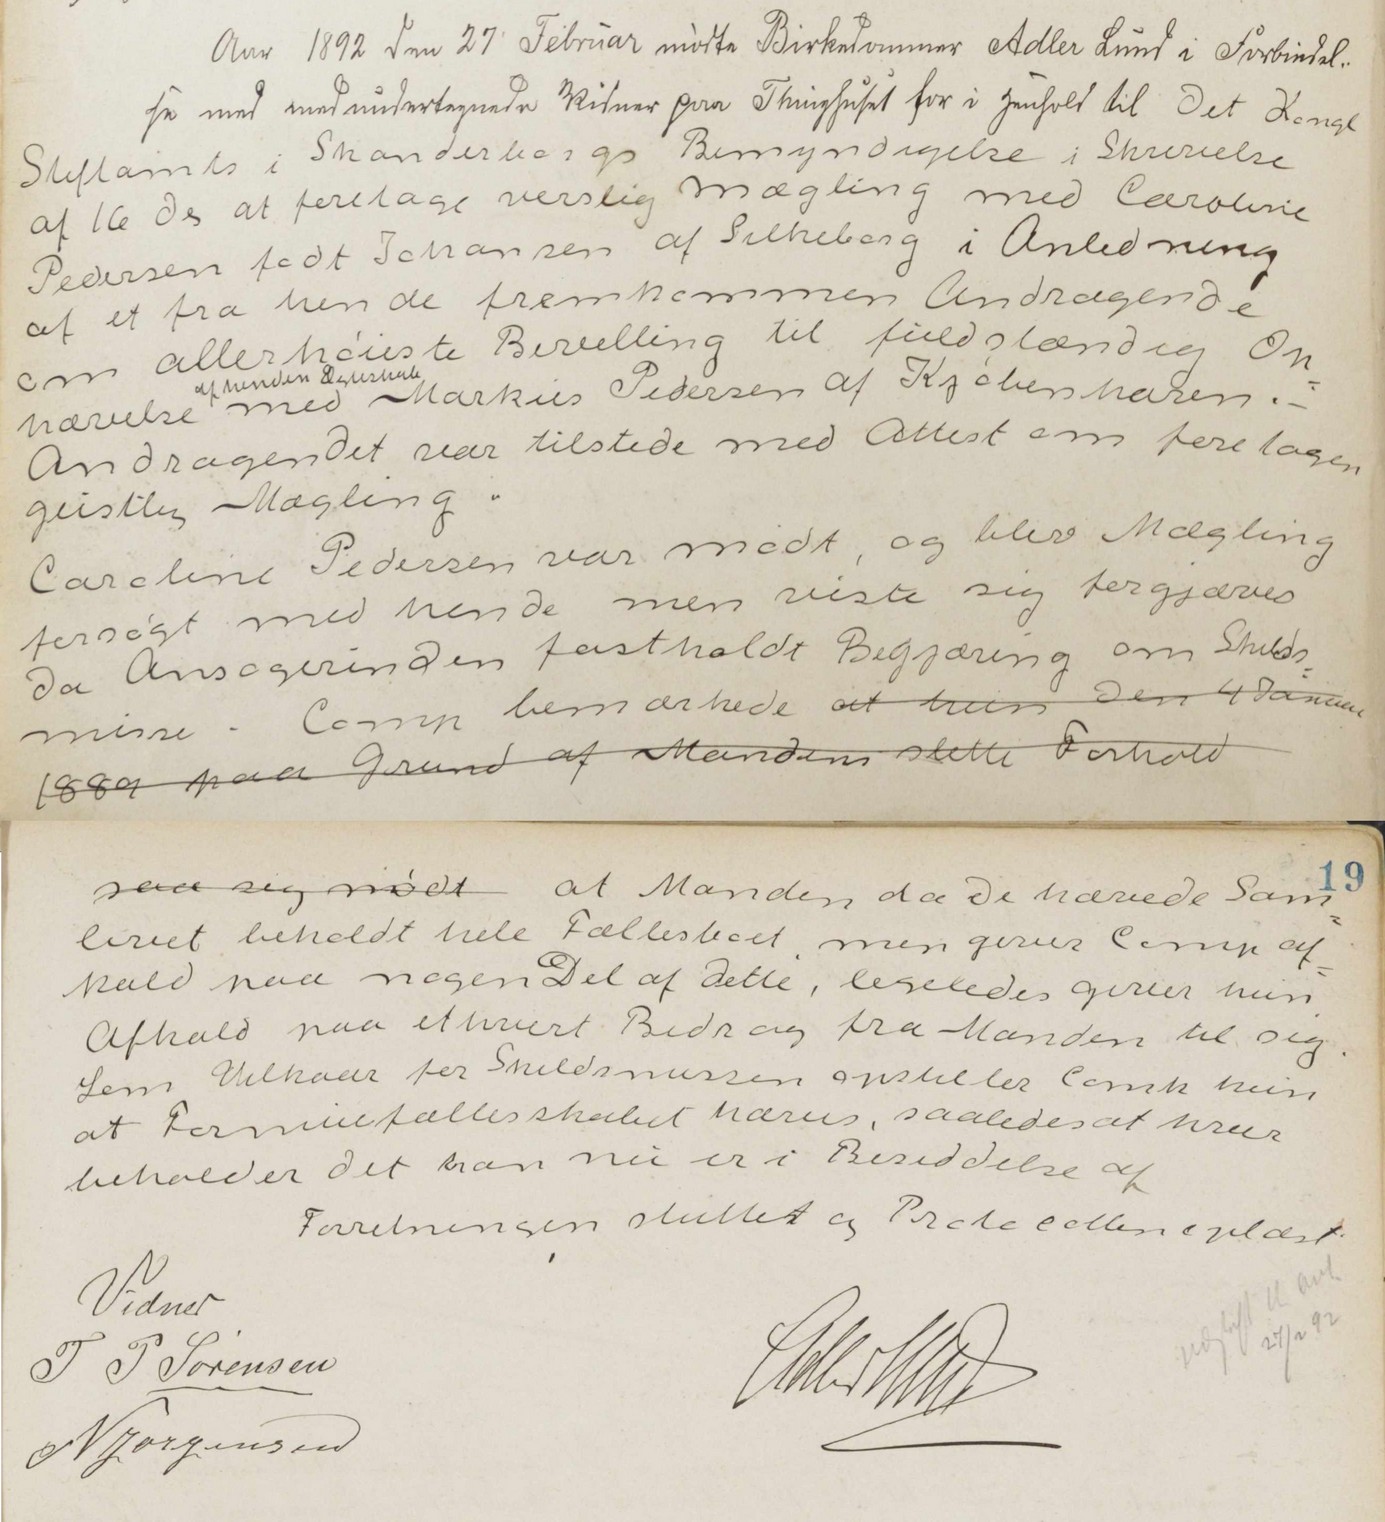 Aar 1892 den 27 Februar mødte Birkedommer Adler Lund i Forbindel-
se med medundertegnede Vidner paa Thinghuset for i Henhold til Det Kongl
Stiftamts i Skanderborgs Bemyndigelse i Skrivelse
af 16 ds at foretage verslig Mægling med Caroline
Pedersen født Johansen af Silkeborg i Anledning
af et fra hende fremkommen Andragende
om allerhøieste Bevilling til fuldstændig Op=
af hendes Ægteskab
hævelse med Markus Pedersen af Kjøbenhaven.-
Andragendet var tilstede med Attest om foretagen
geistlig Mægling.
Caroline Pedersen var mødt, og blev Mægling
forsøgt med hende men viste sig forgjæves
da Ansøgerinden fastholdt Begjæring om Skilds=
misse. Comp bemærkede at hun den 4 Januar
1889 paa Grund af Mandens slette Forhold
19
saa sig nødt at Manden da de hævede Sam=
livet beholdt hele Fællesboet, men giver Comp af=
kald paa nogen Del af dette, ligeledes giver hun
Afkald paa ethvert Bidrag fra Manden til sig.
Som Vilkaar for Skildsmissen opstiller Comp kun
at Formuefællesskabet hæves, saaledes at hver
beholder det han nu er i Besiddelse af
Forretningen sluttet og Protocollen oplæst.
Vidner
T P Sørensen
N Jørgensen
Adler Lund
27/2 92